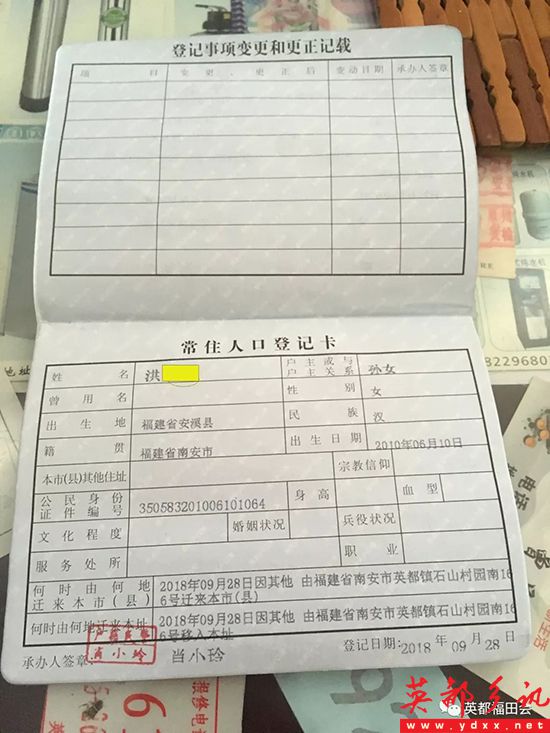 登记事项变更和更正记载
项 目 变更、更正后 变动日期 承办人签章
常住人口登记卡
姓名 洪 户主或与户主关系 孙女
曾用名 性别 女
出生地 福建省安溪县 民族 汉
籍贯 福建省南安市 出生日期 2010年06月10日
本市(县)其他住址 宗教信仰
公民身份证件编号 350583201006101064 身高 血型
文化程度 婚姻状况 兵役状况
服务处所 职业
何时由何地迁来本市(县) 2018年09月28日因其他 由福建省南安市英都镇石山村园南16
6号迁来本市(县)
何时由何地迁来本址 2018年09月28日因其他 由福建省南安市英都镇石山村园南16
6号移入本址
承办人签章: 肖小玲 登记日期:2018 年 09 月 28 日
户籍民警
肖小玲
地址
8229680
RE
英都福田会
英都乡讯
www.ydxx.net